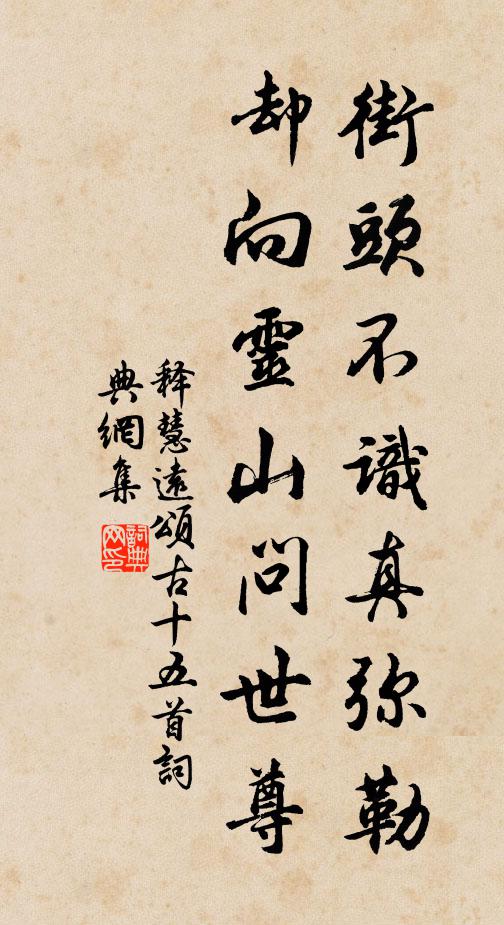 街頭不識真弥勒
却向靈山問世尊
释慧遠頌古十五首詞
典網集
詞典
网印